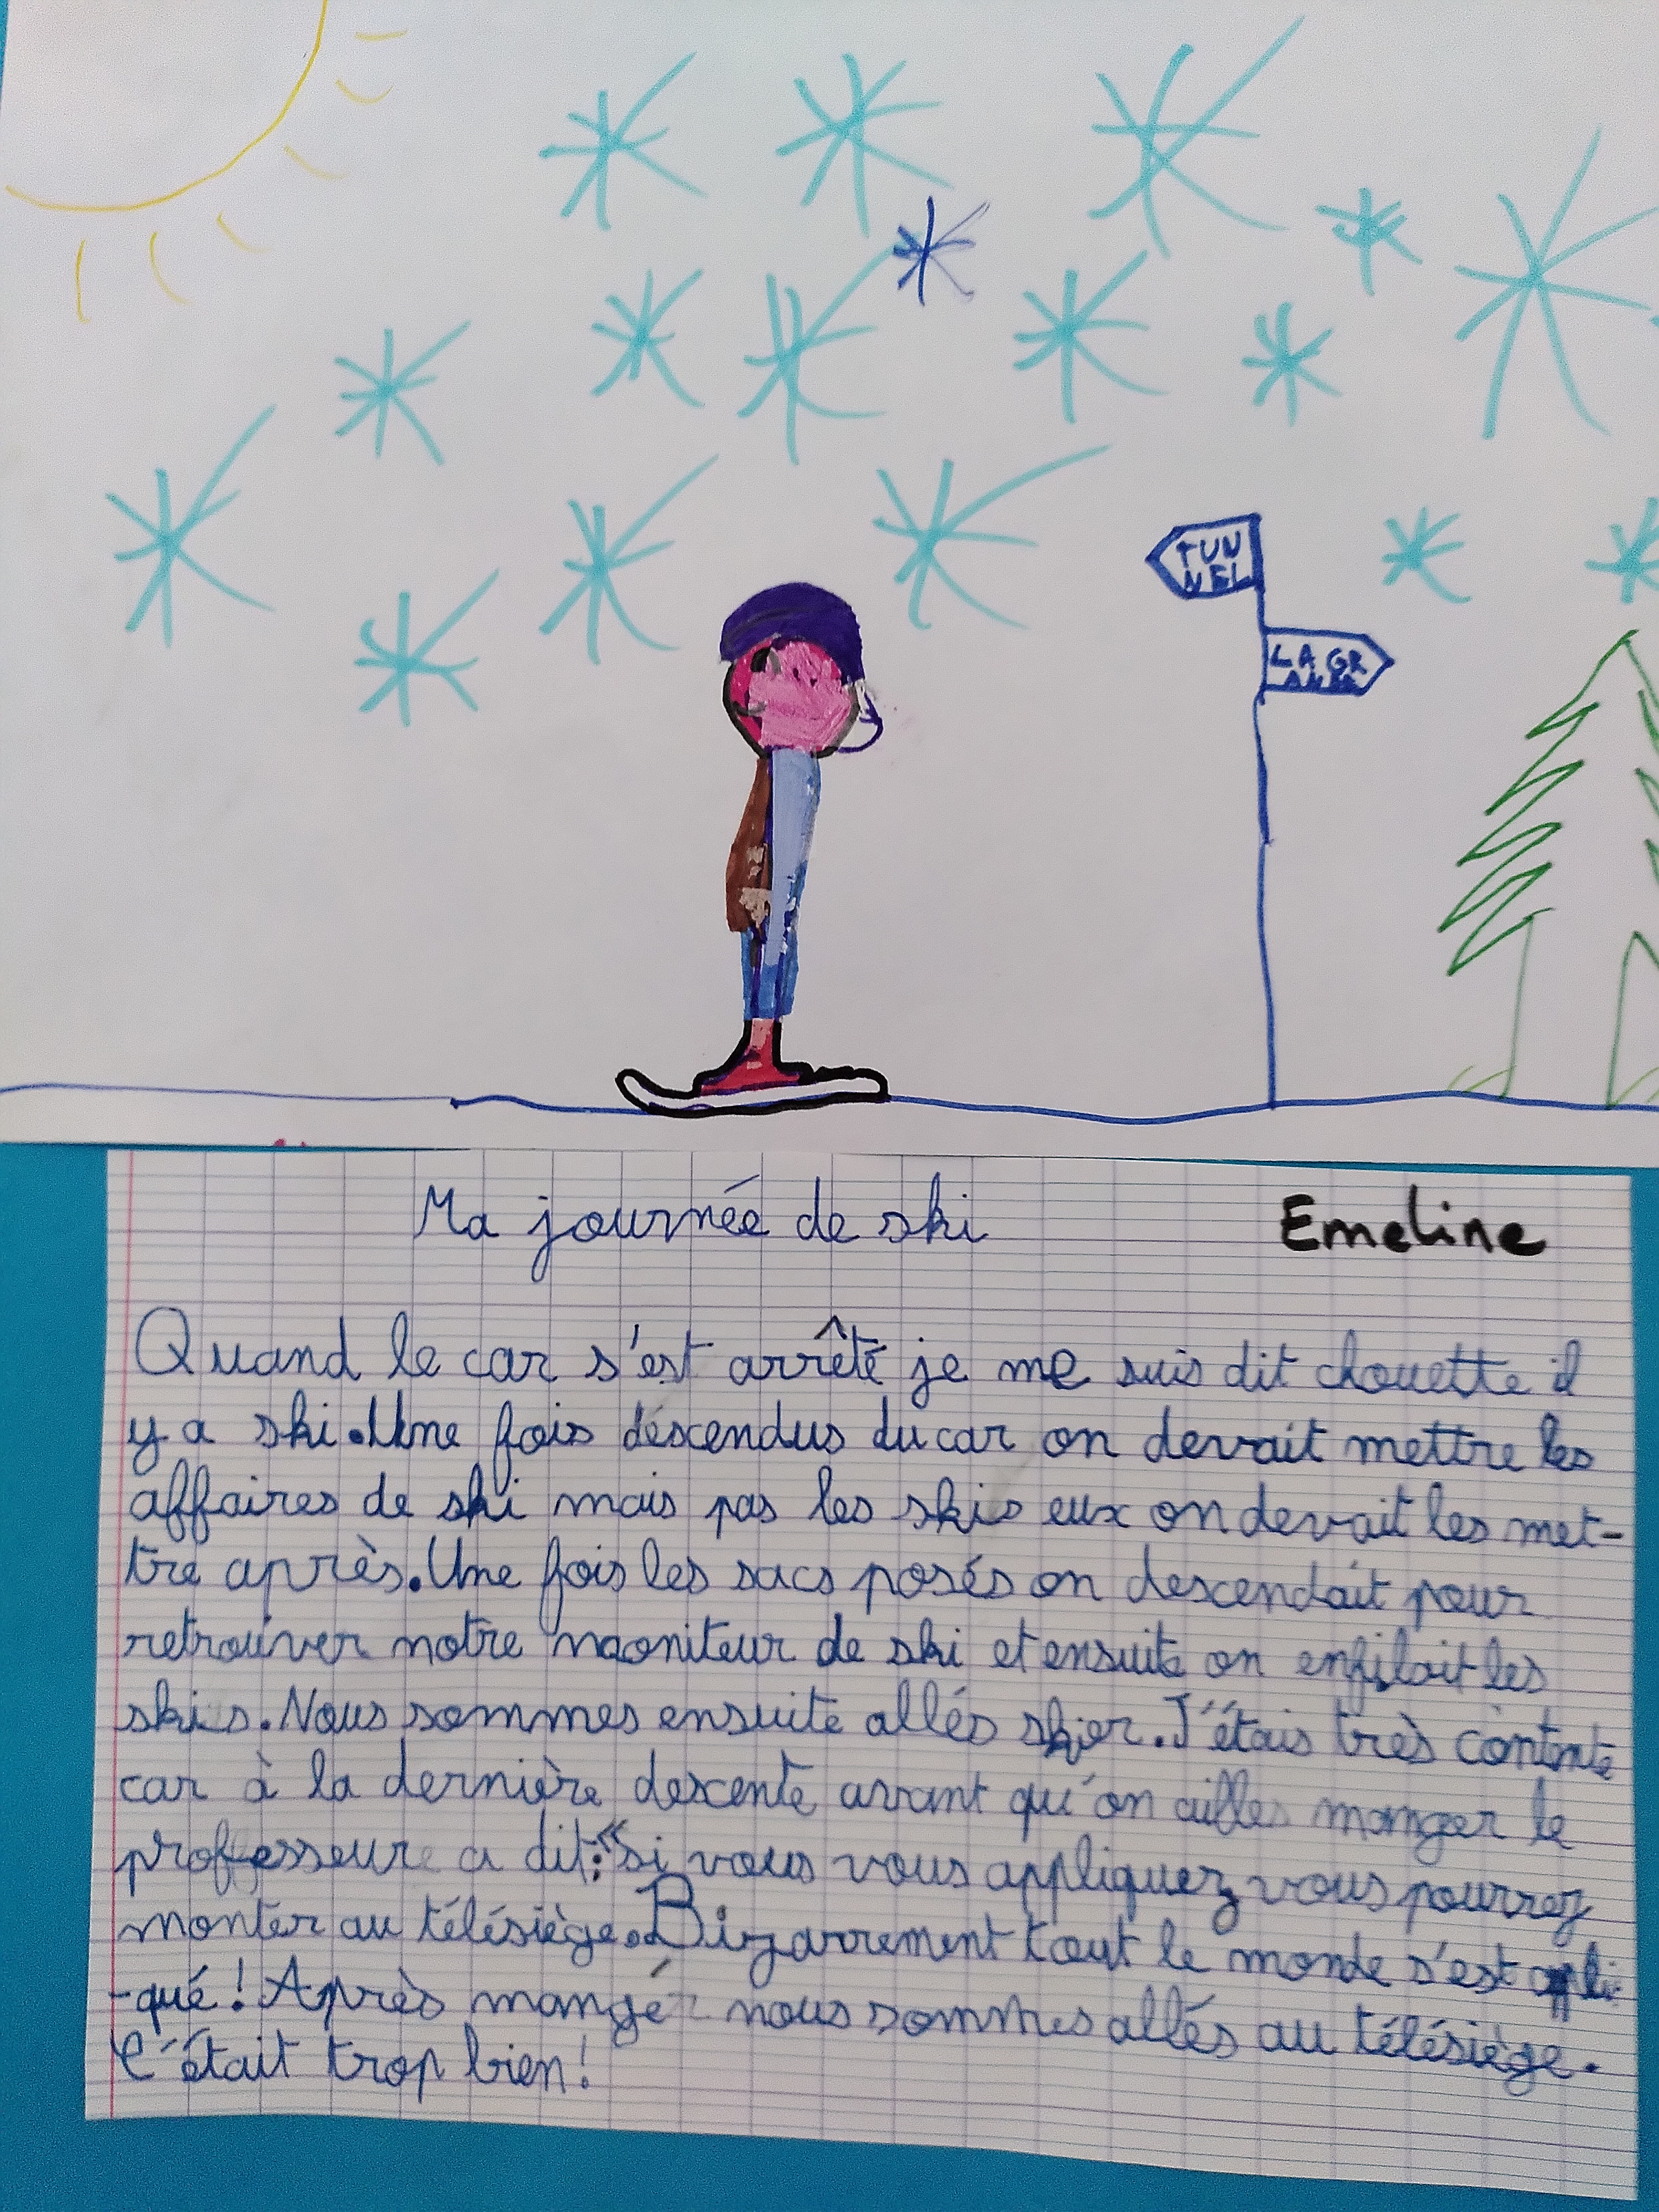 TUN
NEL
LA GR
Ma journée de ski
Emeline
Quand le car s'est arrêté je me suis dit chouette il
y a ski. Une fois déscendus du car on devait mettre les
affaires de ski mais pas les skis eux on devait les met-
tre après. Une fois les sacs posés on descendait pour
retrouver notre moniteur de ski et ensuite on enfilait les
skis. Nous sommes ensuite allés skier. J'étais très contente
car à la dernière descente avant qu'on ailles manger le
professeur a dit: « si vous vous appliquez vous pourrez
monter au télésiège. Bizarrement tout le monde s'est appli-
-qué! Après mangé nous sommes allés au télésiège.
C'était trop bien!